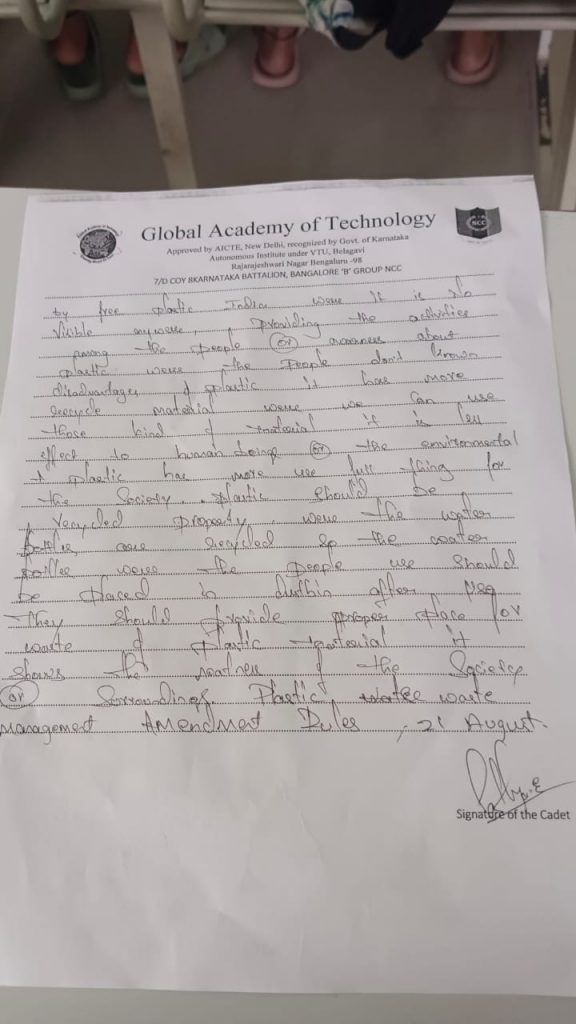 Global Academy of Technology
Approved by AICTE, New Delhi, recognized by Govt. of Karnataka
Autonomous Institute under VTU, Belagavi
Rajarajeshwari Nagar Bengaluru -98
7/D COY 8KARNATAKA BATTALION, BANGALORE 'B' GROUP NCC
NCC
by free plastic India were it is no
visible anywere, providing the activities
among the people or awareness about
plastic were the people don't known
disadvantages of plastic it has more
recycle material were we can use
those kind of material it is less
effect to human beings or the environmental
plastic has more use full thing for
the society. plastic should be
recycled property were the water
bottles are recycled so the water
bottles were the people use should
be placed in dustbin after
They should provide proper place for
waste of plastic material it
shows the neatness of the society
or surroundings. Plastic waste
management Amendment Rules , 21 August.
Signature of the Cadet